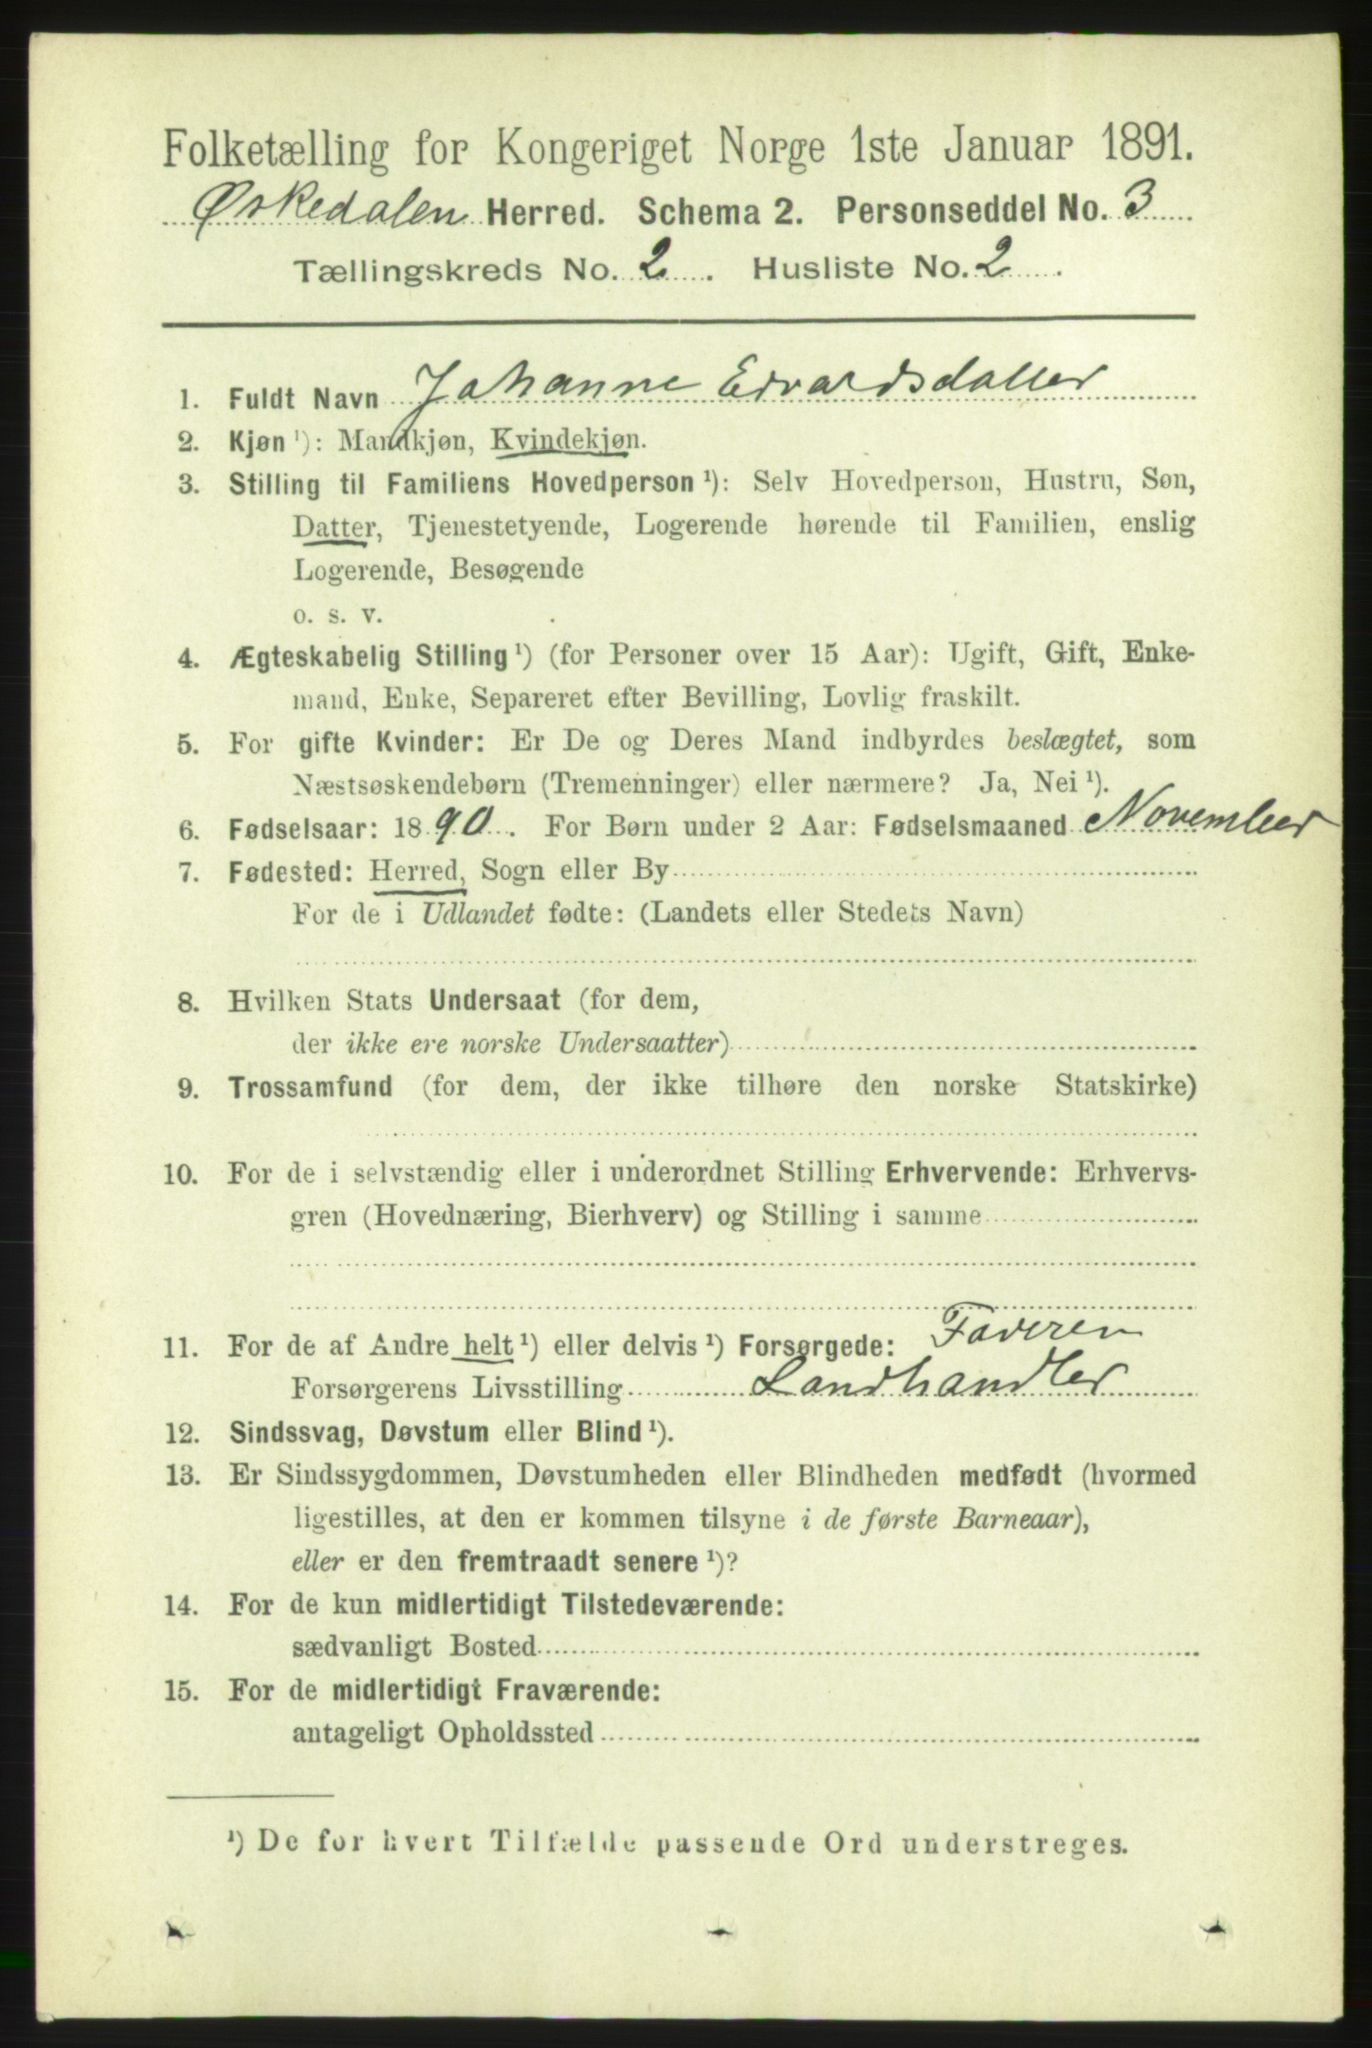 Folketælling for Kongeriget Norge 1ste Januar 1891.
Øskedalen Herred. Schema 2. Personseddel No. 3
Tællingskreds No. 2. Husliste No. 2.
1. Fuldt Navn Johanne Edvardsdatter
2. Kjøn ¹): Mandkjøn, Kvindekjøn.
3. Stilling til Familiens Hovedperson ¹): Selv Hovedperson, Hustru, Søn,
Datter, Tjenestetyende, Logerende hørende til Familien, enslig
Logerende, Besøgende
o. s. v.
4. Ægteskabelig Stilling ¹) (for Personer over 15 Aar): Ugift, Gift, Enke-
mand, Enke, Separeret efter Bevilling, Lovlig fraskilt.
5. For gifte Kvinder: Er De og Deres Mand indbyrdes beslægtet, som
Næstsøskendebørn (Tremenninger) eller nærmere? Ja, Nei ¹).
6. Fødselsaar: 1890. For Børn under 2 Aar: Fødselsmaaned November
7. Fødested: Herred, Sogn eller By
For de i Udlandet fødte: (Landets eller Stedets Navn)
8. Hvilken Stats Undersaat (for dem,
der ikke ere norske Undersaatter)
9. Trossamfund (for dem, der ikke tilhøre den norske Statskirke)
10. For de i selvstændig eller i underordnet Stilling Erhvervende: Erhvervs-
gren (Hovednæring, Bierhverv) og Stilling i samme
11. For de af Andre helt ¹) eller delvis ¹) Forsørgede: Faderen
Forsørgerens Livsstilling Landhandler
12. Sindssvag, Døvstum eller Blind ¹).
13. Er Sindssygdommen, Døvstumheden eller Blindheden medfødt (hvormed
ligestilles, at den er kommen tilsyne i de første Barneaar),
eller er den fremtraadt senere ¹)?
14. For de kun midlertidigt Tilstedeværende:
sædvanligt Bosted
15. For de midlertidigt Fraværende:
antageligt Opholdssted
¹) De for hvert Tilfælde passende Ord understreges.